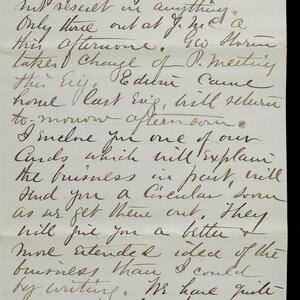 not result in anything.
Only three out at
this afternoon. Geo Storm
takes charge of P. meeting
this Evig. Edwin Came
home last Evig, will return
to-morrow afternoon.
I Enclose you one of our
Cards which will Explain
the business in part, will
send you a Circular soon
as we get them out. They
will give you a better &
more Extended idea of the
business than I could
by writing. We have quite